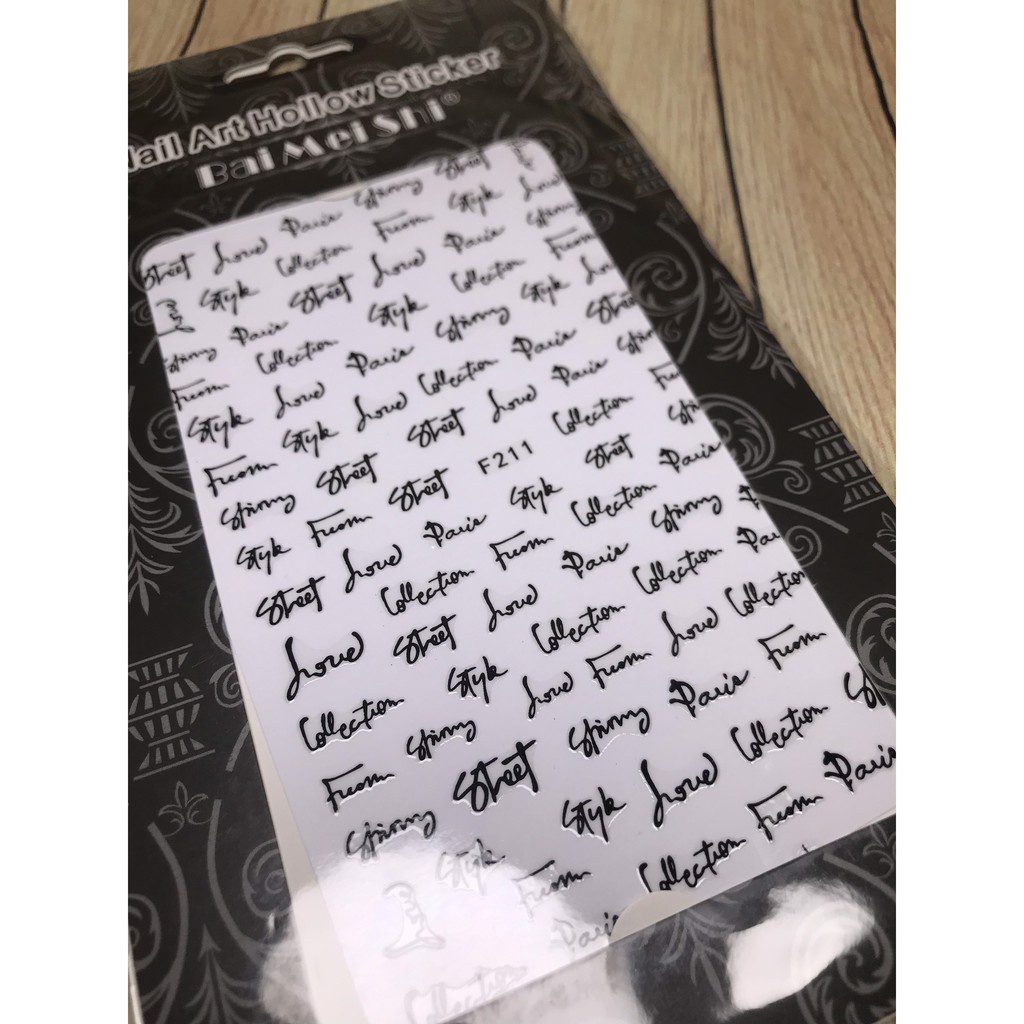 Nail Art Hollow Sticker
BaiMeiShi®
Street Love Paris Street
Style Collection From Style Love
Paris Street Love Paris
From Collection Style Collection From
Style Love Paris Style
From Style Love Collection Paris Street
Street Street Love Paris
Style From Street F211 Collection
Street Love Paris Style Street
Collection From Collection Paris
Love Street Love Paris
Collection Style Collection Collection
From Love From Love Collection
Street Paris From
Style Style Love Collection
From Collection From Paris
Collection Paris